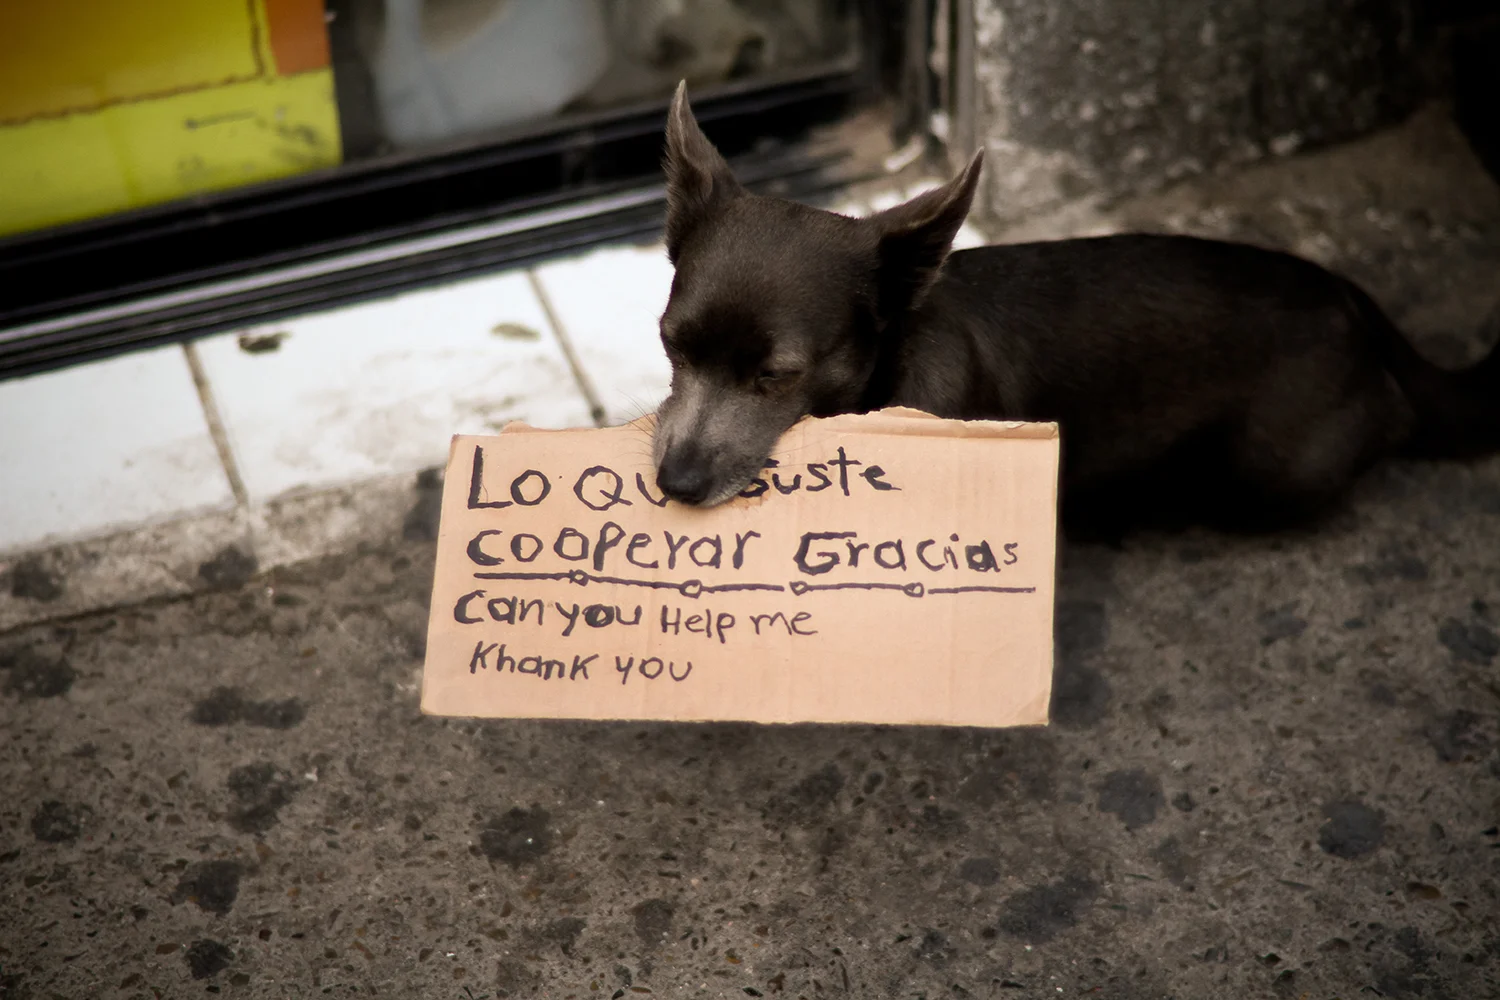 Lo Que Guste
cooperar Gracias
Can you Help me
Khank you